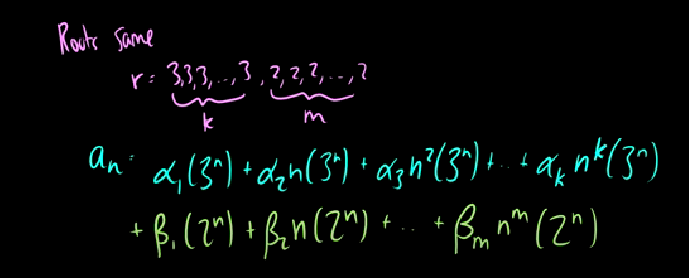 Roots same
r = 3,3,3,...,3 , 2,2,2,...,2
k m
aₙ = α₁(3ⁿ) + α₂n(3ⁿ) + α₃n²(3ⁿ) + ... + αₖnᵏ(3ⁿ)
+ β₁(2ⁿ) + β₂n(2ⁿ) + ... + βₘnᵐ(2ⁿ)